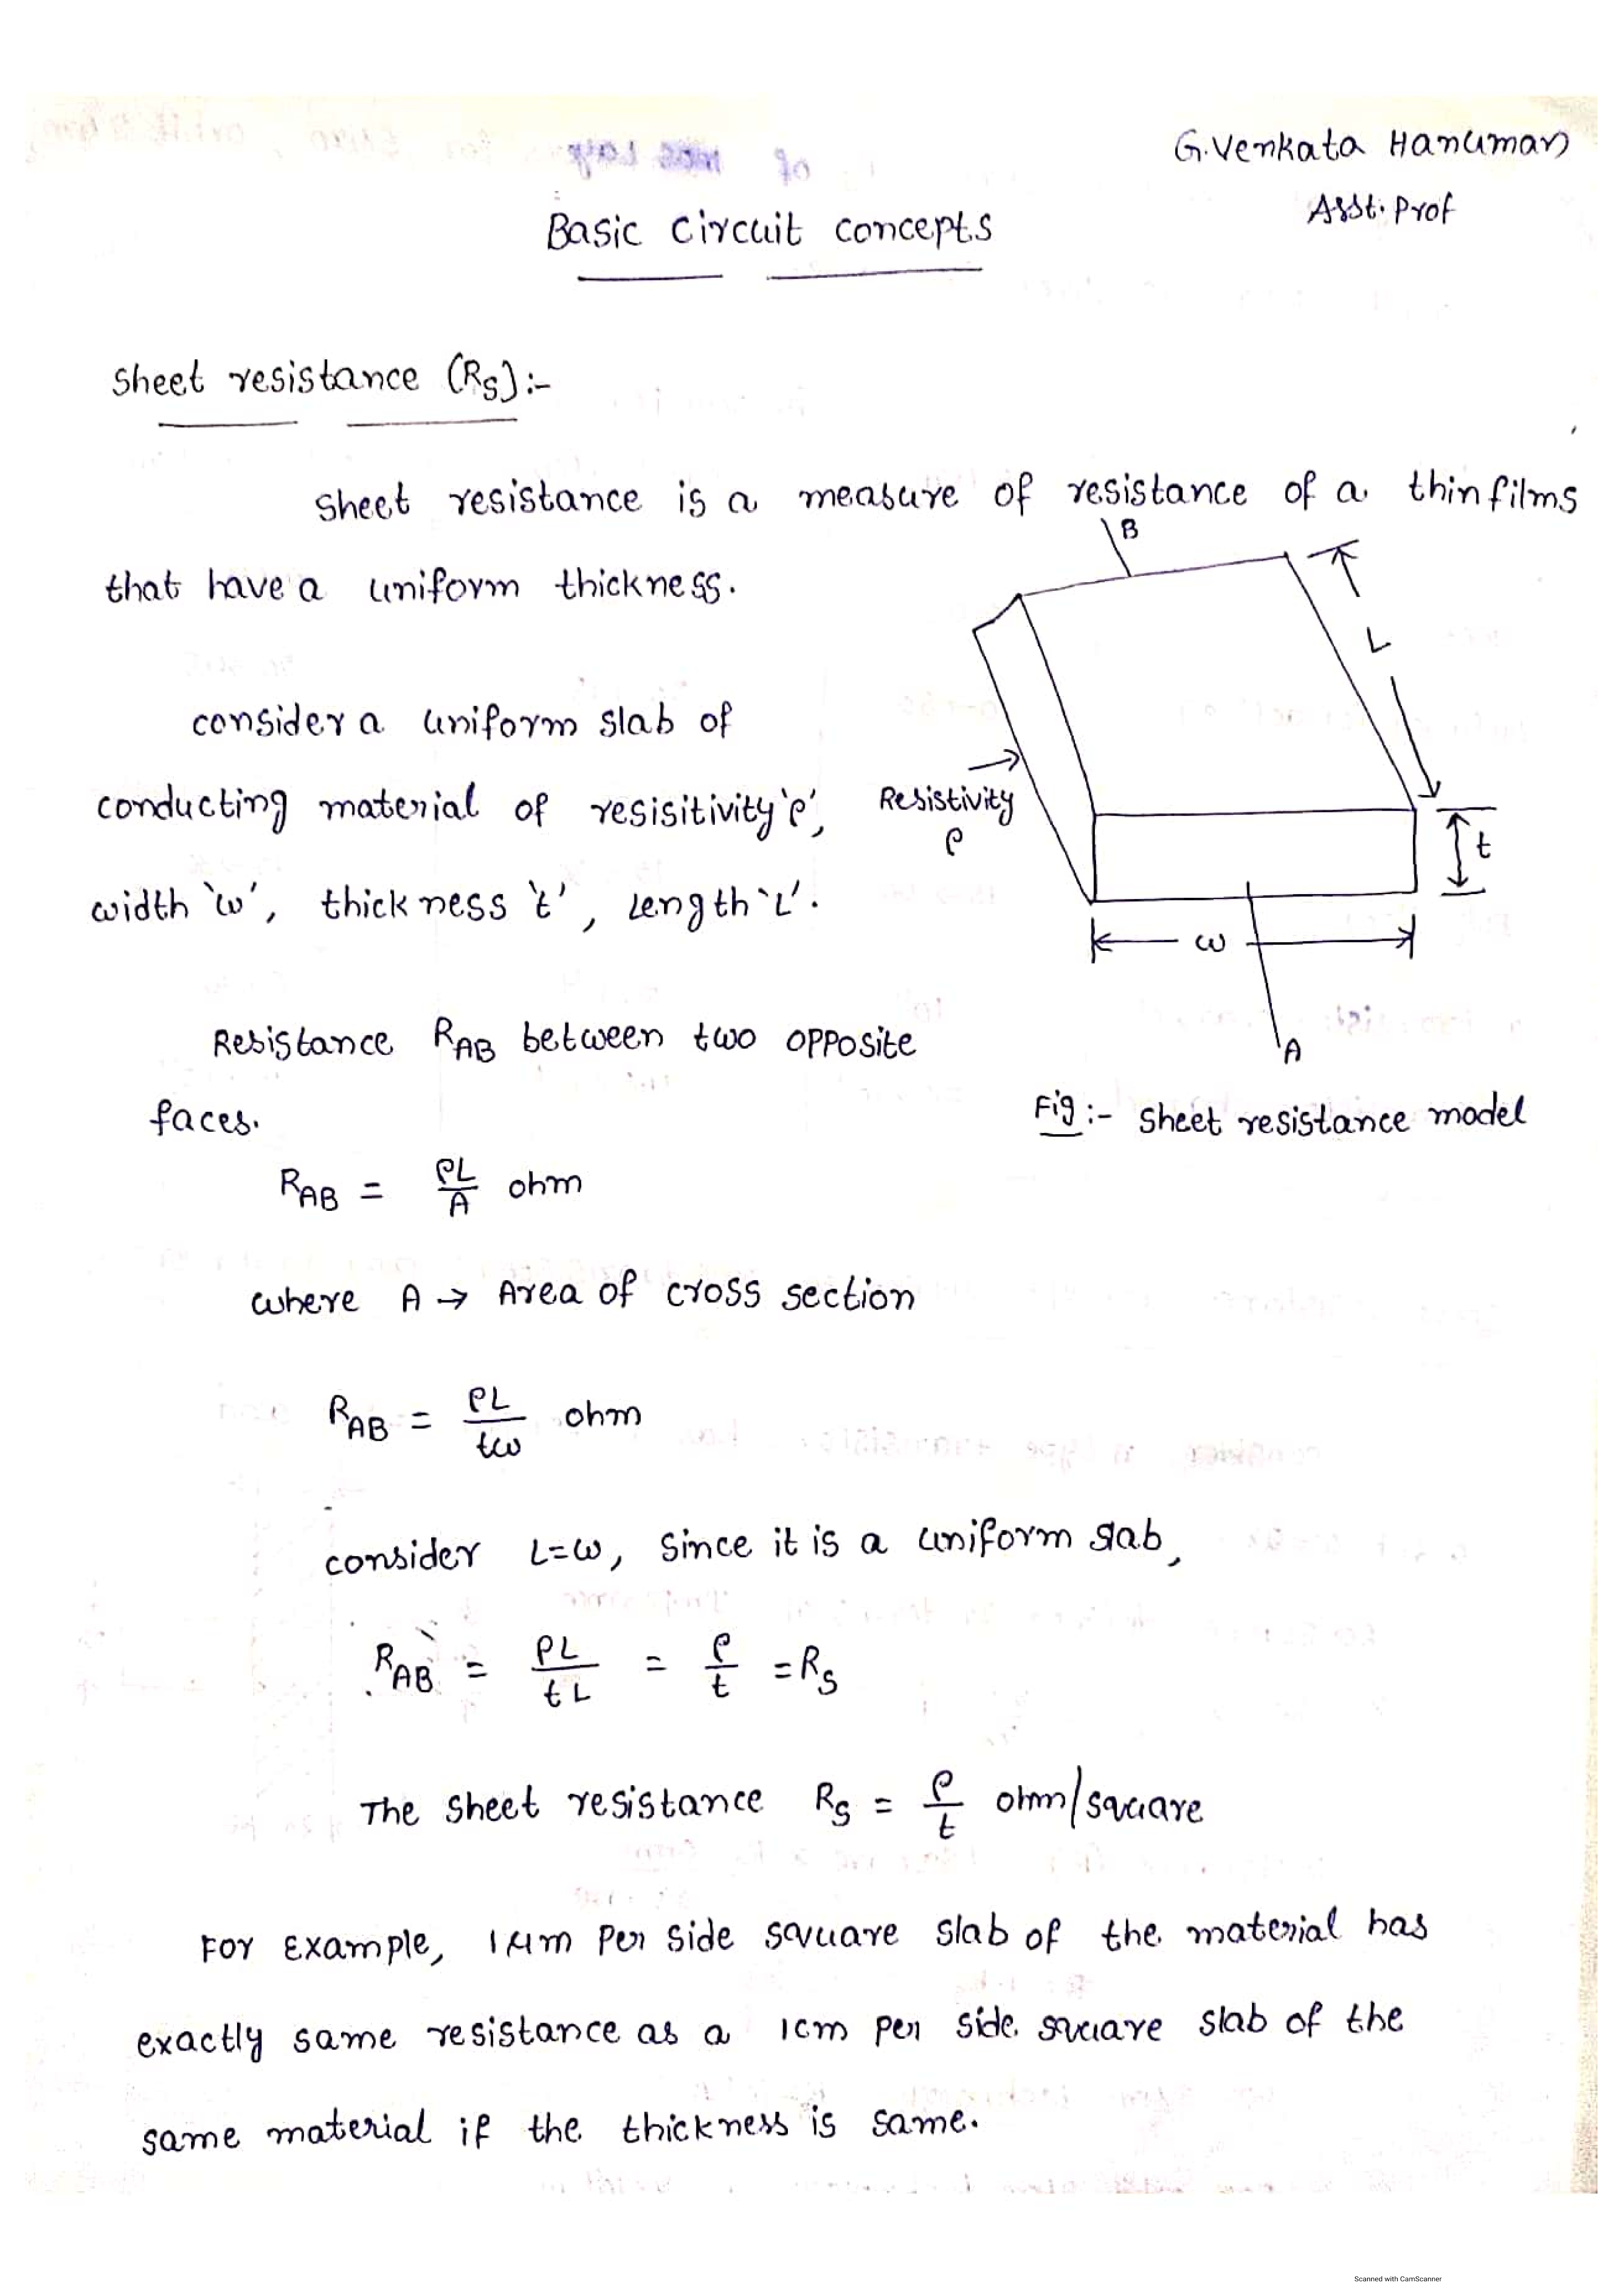 G.Venkata Hanuman
Asst. Prof
Basic circuit concepts
Sheet resistance (RS):-
Sheet resistance is a measure of resistance of a thin films
that have a uniform thickness.
B
L
consider a uniform slab of
conducting material of resisitivity 'ρ',
Resistivity
ρ
t
width 'w', thickness 't', Length 'L'.
w
Resistance RAB between two opposite
A
faces.
Fig:- Sheet resistance model
RAB = ρL/A ohm
where A → Area of cross section
RAB = ρL/tw ohm
consider L=w, Since it is a uniform slab,
RAB = ρL/tL = ρ/t = RS
The sheet resistance RS = ρ/t ohm/square
For Example, 1μm Per side square slab of the material has
exactly same resistance as a 1cm per side square slab of the
same material if the thickness is same.
Scanned with CamScanner